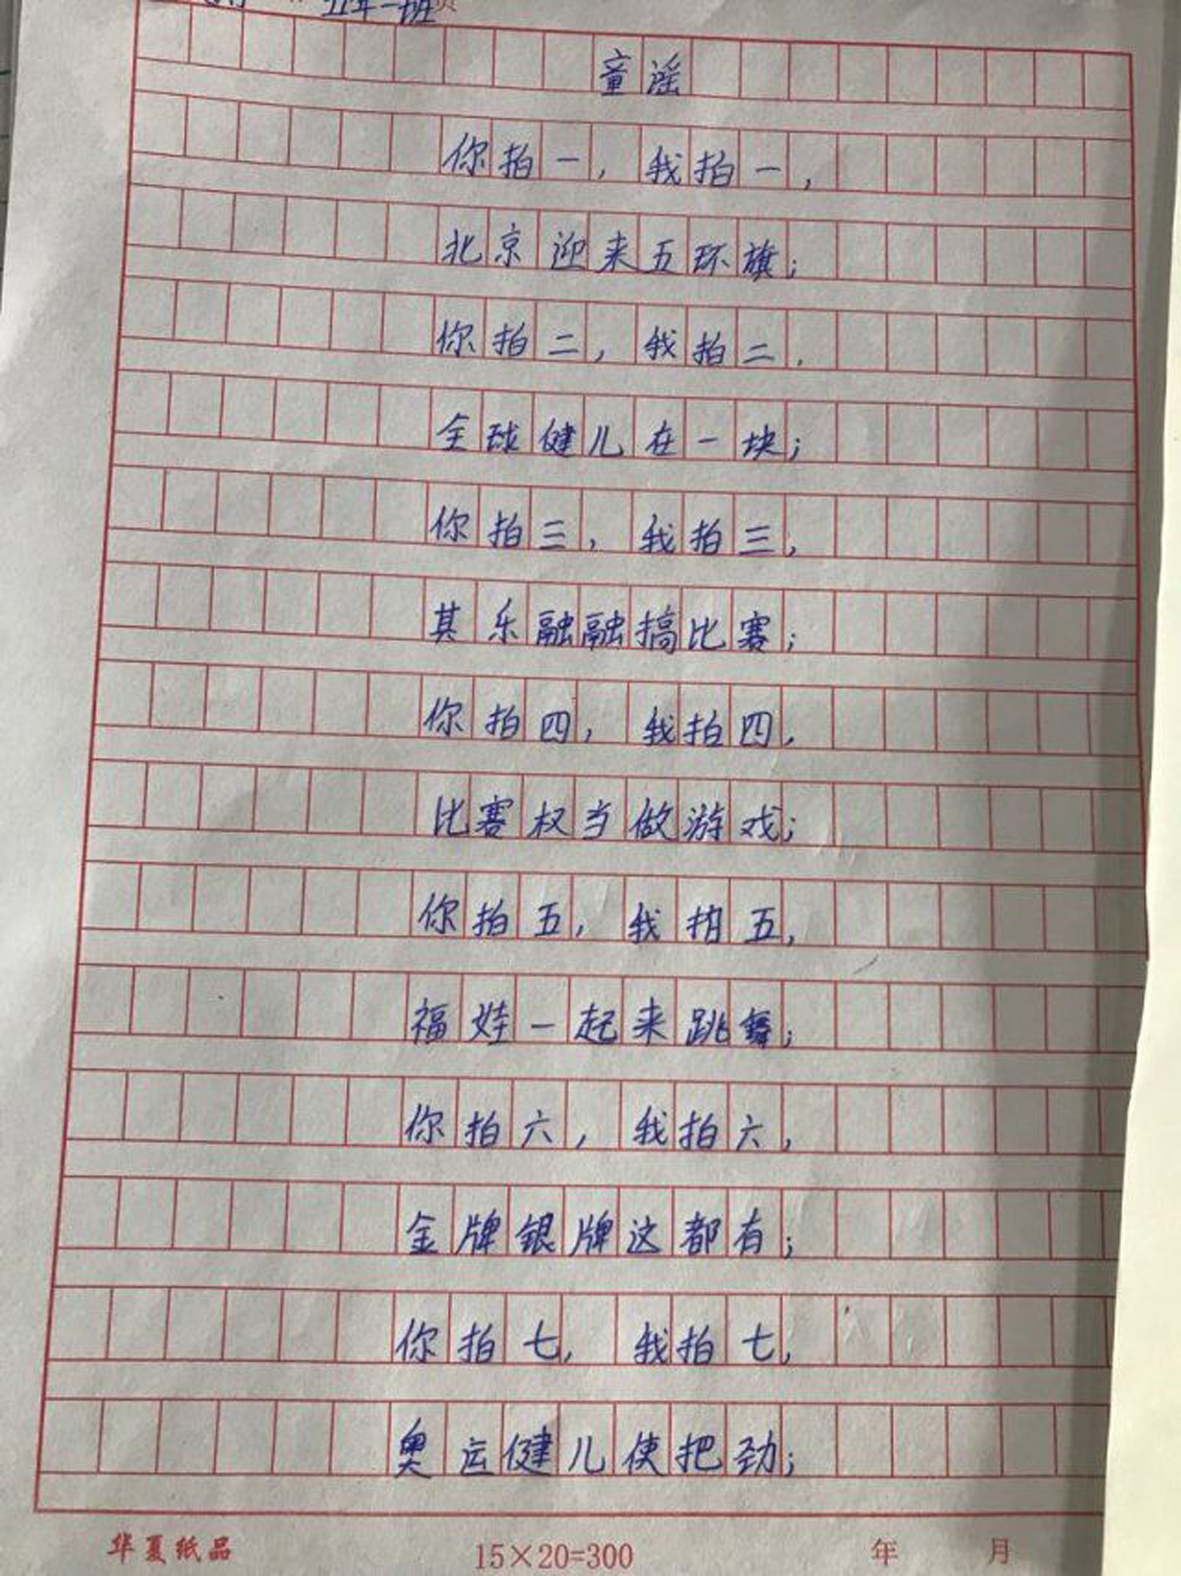 五年一班
童谣
你拍一，我拍一，
北京迎来五环旗；
你拍二，我拍二，
全球健儿在一块；
你拍三，我拍三，
其乐融融搞比赛；
你拍四，我拍四，
比赛权当做游戏；
你拍五，我拍五，
福娃一起来跳舞；
你拍六，我拍六，
金牌银牌这都有；
你拍七，我拍七，
奥运健儿使把劲；
华夏纸品 15×20=300 年 月